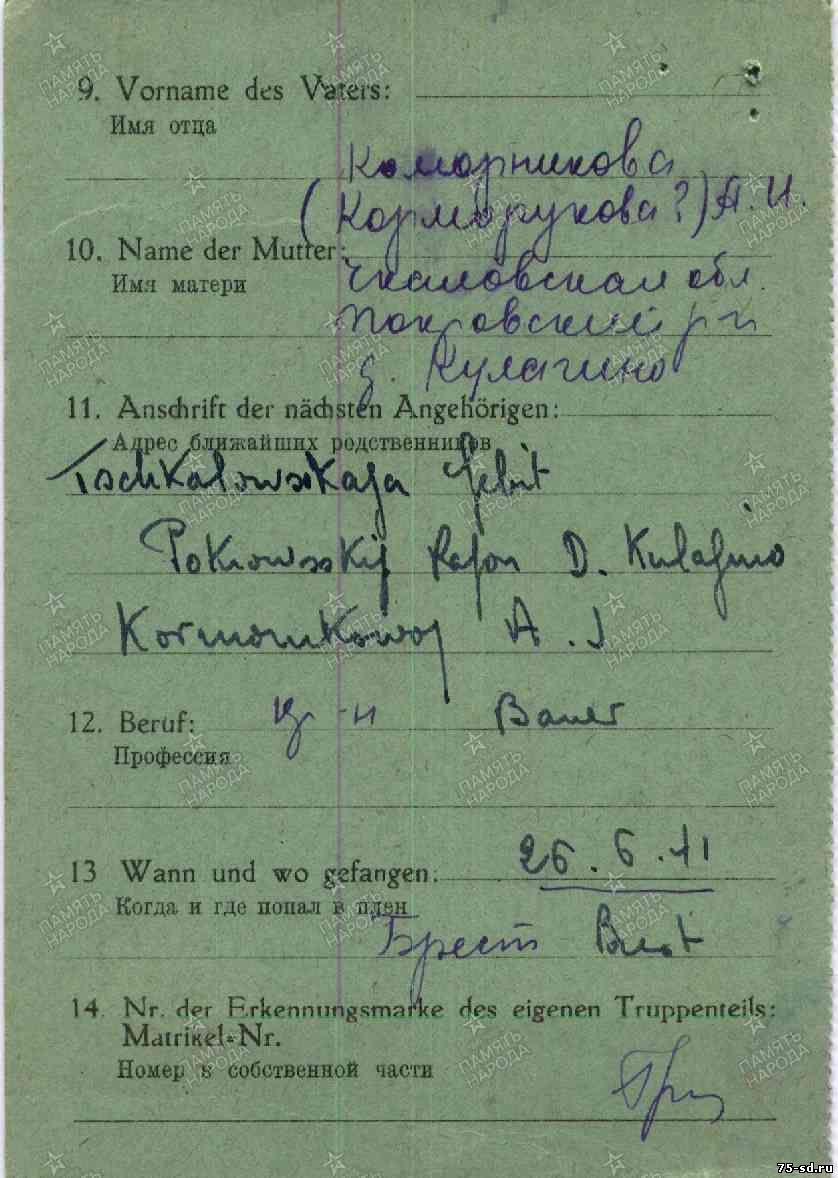 9. Vorname des Vaters:
Имя отца
Коморникова
(Корморукова?) А. И.
10. Name der Mutter:
Имя матери
Чкаловская обл.
Покровский р-н
д. Кулагино
11. Anschrift der nächsten Angehörigen:
Адрес ближайших родственников
Tschkalowsskaja Gebit
Pokrowsskij Rajon D. Kulagino
A. J
12. Beruf: кр-н Bauer
Профессия
13 Wann und wo gefangen: 26.6.41
Когда и где попал в плен
Брест Brest
14. Nr. der Erkennungsmarke des eigenen Truppenteils:
Matrikel-Nr.
Номер в собственной части
ПАМЯТЬ НАРОДА
75-sd.ru